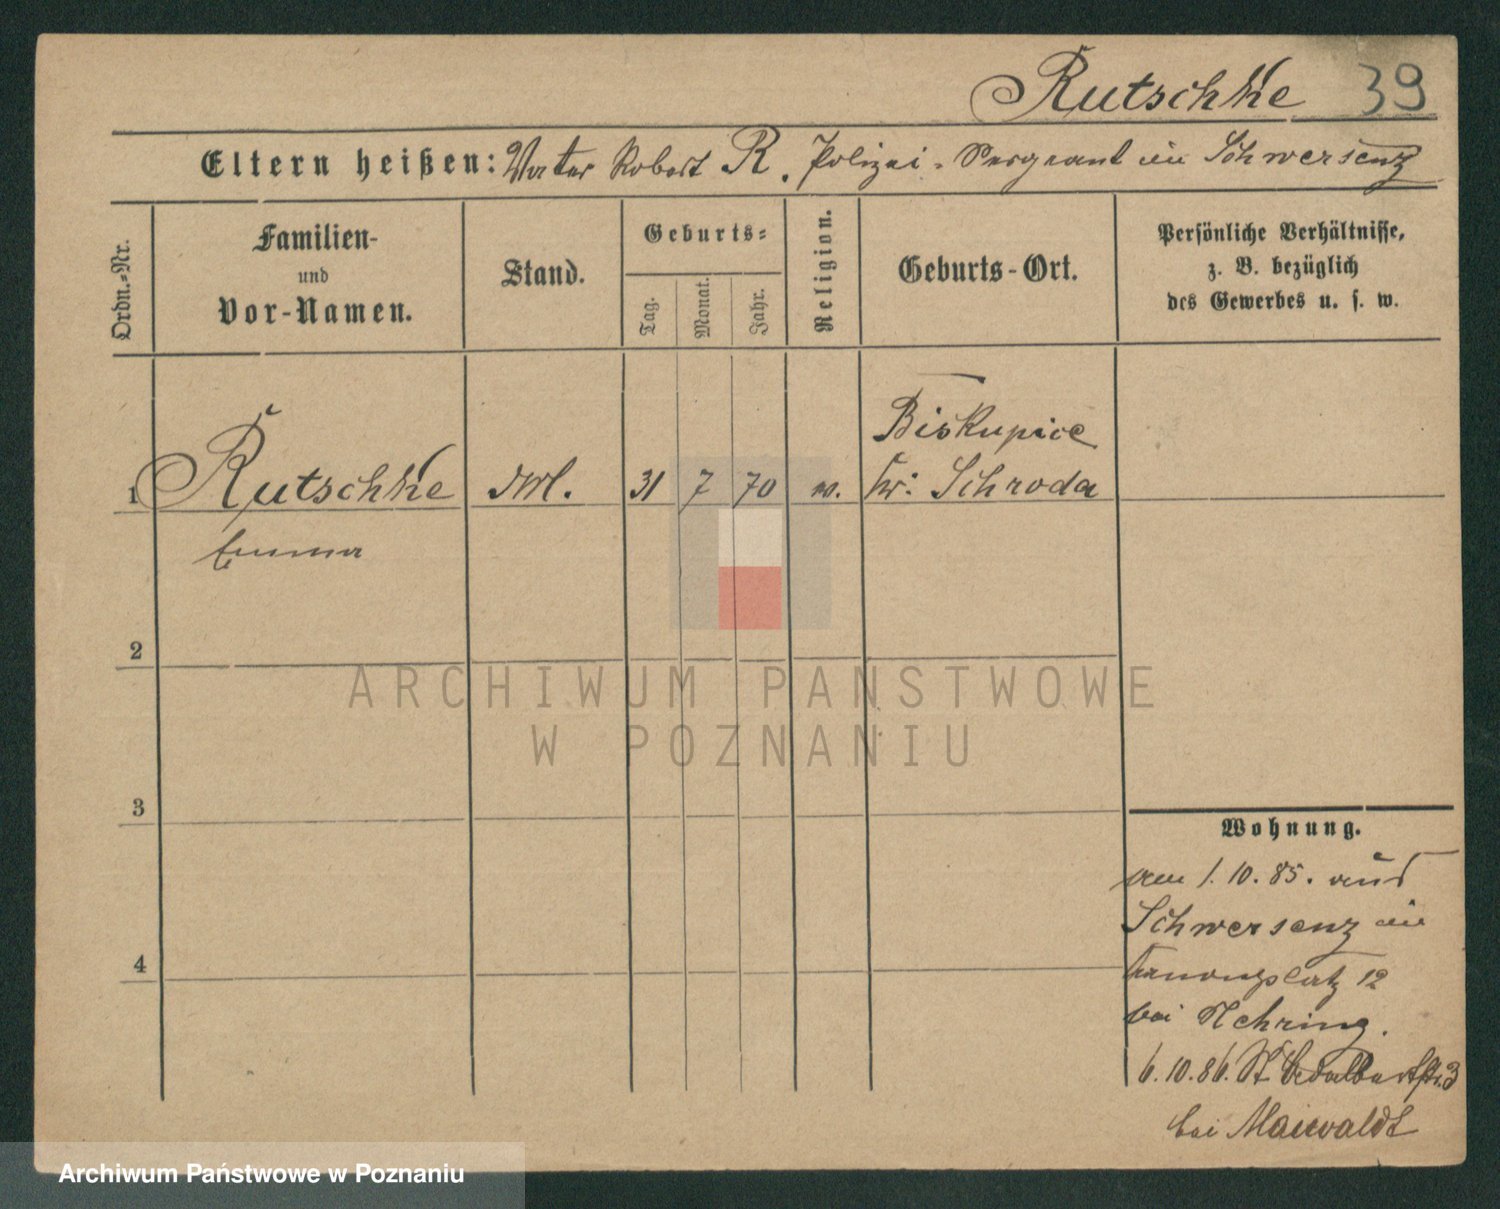 Rutschke 39
Eltern heißen: Vater Robert R. Polizei-Sergeant in Schwersenz
Ordn.-Nr.
Familien-
und
Vor-Namen.
Stand.
Geburts-
Tag. Monat. Jahr.
Religion.
Geburts-Ort.
Persönliche Verhältnisse,
z. B. bezüglich
des Gewerbes u. s. w.
Biskupice
1 Rutschke 31 7 70 Kr. Schroda
Emma
2
3
4
Wohnung.
am 1.10.85. aus
Schwersenz in
12
bei Nehring.
6.10.86. St. Adalbertstr. 3
bei Maiwaldt
ARCHIWUM PAŃSTWOWE
W POZNANIU
Archiwum Państwowe w Poznaniu